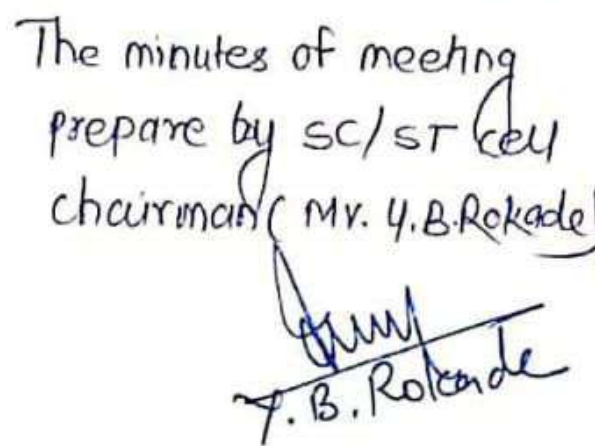 The minutes of meeting
prepare by SC/ST cell
chairman( Mr. Y.B.Rokade)
Y. B. Rokade